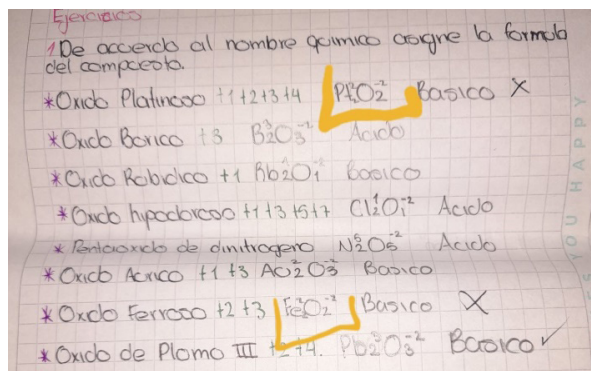 Ejercicios
1 De accerdo al nombre quimico asigne la formula
del compuesto.
*Oxido Platinoso +1+2+3+4 Pt₂O₂⁻² Basico X
*Oxido Borico +3 B₂³O₃⁻² Acido
*Oxido Robidico +1 Rb₂¹O₁⁻² Basico
*Oxido hipocloroso +1+3+5+7 Cl₂¹O₁⁻² Acido
* Pentaoxido de dinitrogeno N₂⁵O₅⁻² Acido
*Oxido Aurico +1 +3 AU₂³O₃⁻² Basico
*Oxido Ferroso +2+3 Fe₂²O₂⁻² Basico X
*Oxido de Plomo III +2+4. Pb₂³O₃⁻² Basico ✓
YOU HAPPY